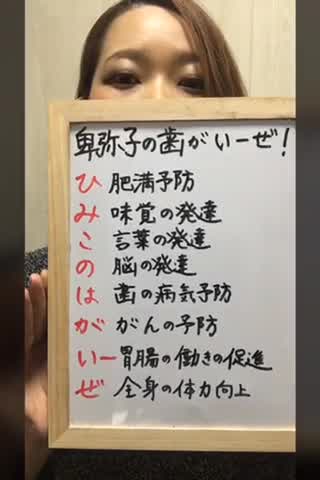 卑弥子の歯がいーぜ!
ひ 肥満予防
み 味覚の発達
こ 言葉の発達
の 脳の発達
は 歯の病気予防
が がんの予防
いー 胃腸の働きの促進
ぜ 全身の体力向上